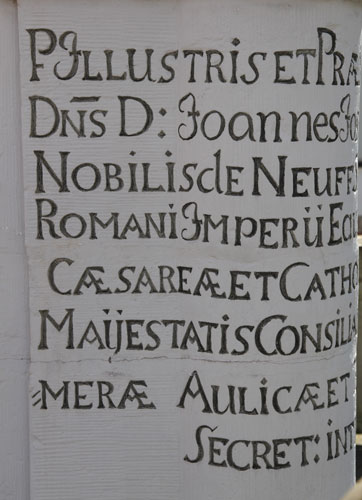 P:ILLUSTRIS ET PRÆ
DNS̄ D: Joannes Jo
NOBILIS de NEUFF
ROMANI IMPERII EQU
CÆSAREÆ ET CATHO
MAIJESTATIS CONSILIA
=MERÆ AULICÆ ET
SECRET: INT